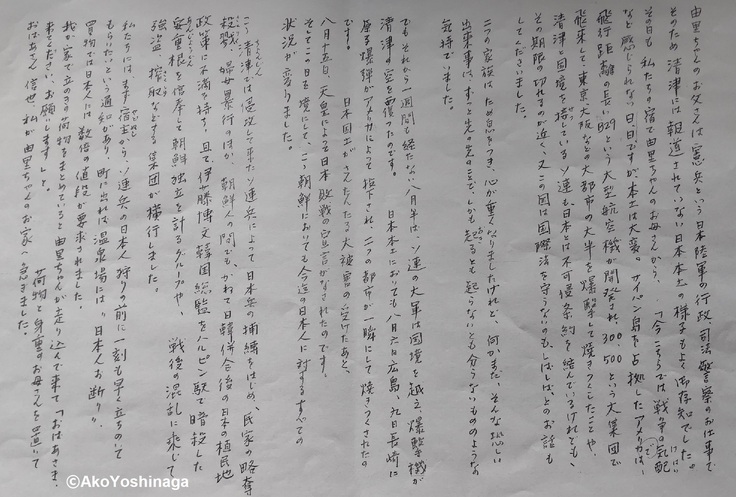 由里ちゃんのお父さんは憲兵という日本陸軍の行政、司法警察のお仕事で
そのため清津には報道されていない日本本土の様子もよく御存知でした。
その日も私たちの宿で由里ちゃんのお母さんから、「今こちらでは戦争の気配
など感じられない毎日ですが本土は大変。サイパン島を占拠したアメリカは、
飛行距離の長いB29という大型航空機が開発され、300、500という大集団で
飛来して、東京、大阪などの大都市の大半を爆撃して焼きつくしたことや、
清津と国境を接しているソ連も、日本とは不可侵条約を結んでいるけれども、
その期限の切れるのが近く、又この国は国際法を守らないのも、しばしばとのお話も
してくださいました。
二つの家族は、ため息をつき、心が重くなりましたけれど、何かまだ、そんな恐しい
出来事は、ずっと先、先のことで、しかも起るとも起らないとも分らないもののような
気持でいました。
でもそれから一週間も経たない八月半ば、ソ連の大軍は国境を越え、爆撃機が
清津の空を覆ったのです。日本本土においても八月六日広島、九日長崎に
原子爆弾がアメリカによって投下され、二つの都市が一瞬にして焼きつくされたの
です。日本国土が、さんたんたる大被害の受けたあと、
八月十五日、天皇による日本敗戦の宣言がなされたのです。
そしてこの日を境にして、ここ朝鮮においても今迄の日本人に対するすべての
状況が変りました。
ここ清津では進攻して来たソ連兵によって日本兵の捕縛をはじめ、民家の略奪
殺戮、婦女暴行のほか、朝鮮人の間でもかねて日韓併合後の日本の植民地
政策に不満を持ち、且て、伊藤博文韓国総監をハルピン駅で暗殺した
安重根を信奉して朝鮮独立を計るグループや、戦後の混乱に乗じて
強盗、搾取などする集団が横行しました。
私たちには、まず宿主から、ソ連兵の日本人狩りの前に一刻も早く立ちのいて
もらいたいという通知があり、町に出れば温泉場には〃日本人お断り〃、
買物では日本人には、数倍の値段が要求されました。
我が家で立のき荷物をまとめていると由里ちゃんが走り込んで来て「おばあさま、
来てください。お願いします」と。荷物と身重のお母さんを置いて
おばあさん、信也、私が由里ちゃんのお家へ急ぎました。
©AkoYoshinaga